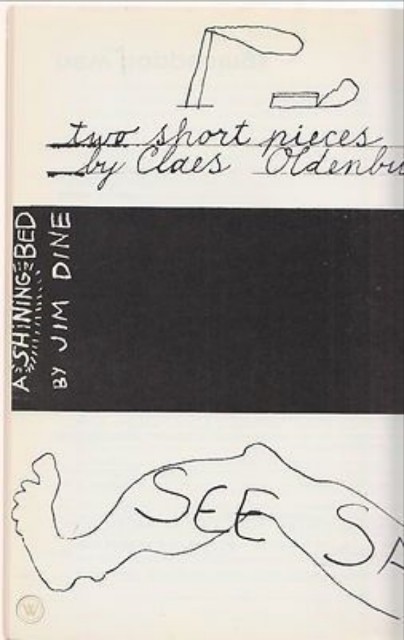 two short pieces
by Claes Oldenbu
A SHINING BED
BY JIM DINE
SEE SA
W